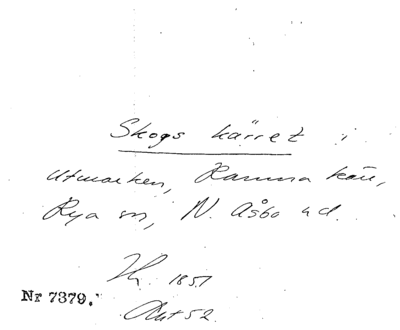 Skogs kärret i
Utmarken, Ramna kär,
Rya sn, N. Åsbo hd.
1851
Nr 7379.
Akt 52